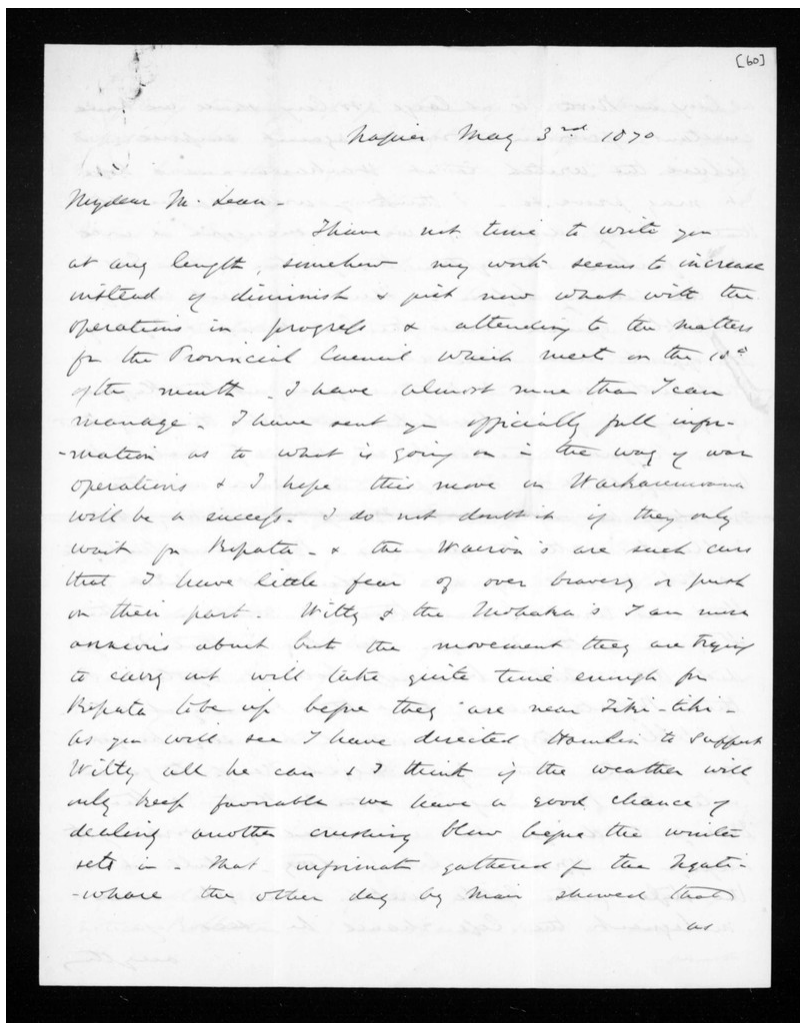 [60]
Napier May 3rd 1870
My dear Mc Lean -
I have not time to write you
at any length, somehow my work seems to increase
instead of diminish & just now what with the
operations in progress & attending to the matters
for the Provincial Council which meet on the 10th
of the month - I have almost more than I can
manage - I have sent you officially full infor-
-mation as to what is going on in the way of war
operations & I hope this move on Waikaremoana
will be a success - I do not doubt it if they only
wait for Ropata - & the Wairoa's are such curs
that I have little fear of over bravery or push
on their part. Witty & the Mohaka's I am more
anxious about but the movement they are trying
to carry out will take quite time enough for
Ropata to be up before they are near Tiki-tiki -
As you will see I have directed Hamlin to support
Witty all he can & I think if the weather will
only keep favorable we have a good chance of
dealing another crushing blow before the winter
sets in - That informat gathered fr the Ngati-
-whare the other day by Main shewed that
as